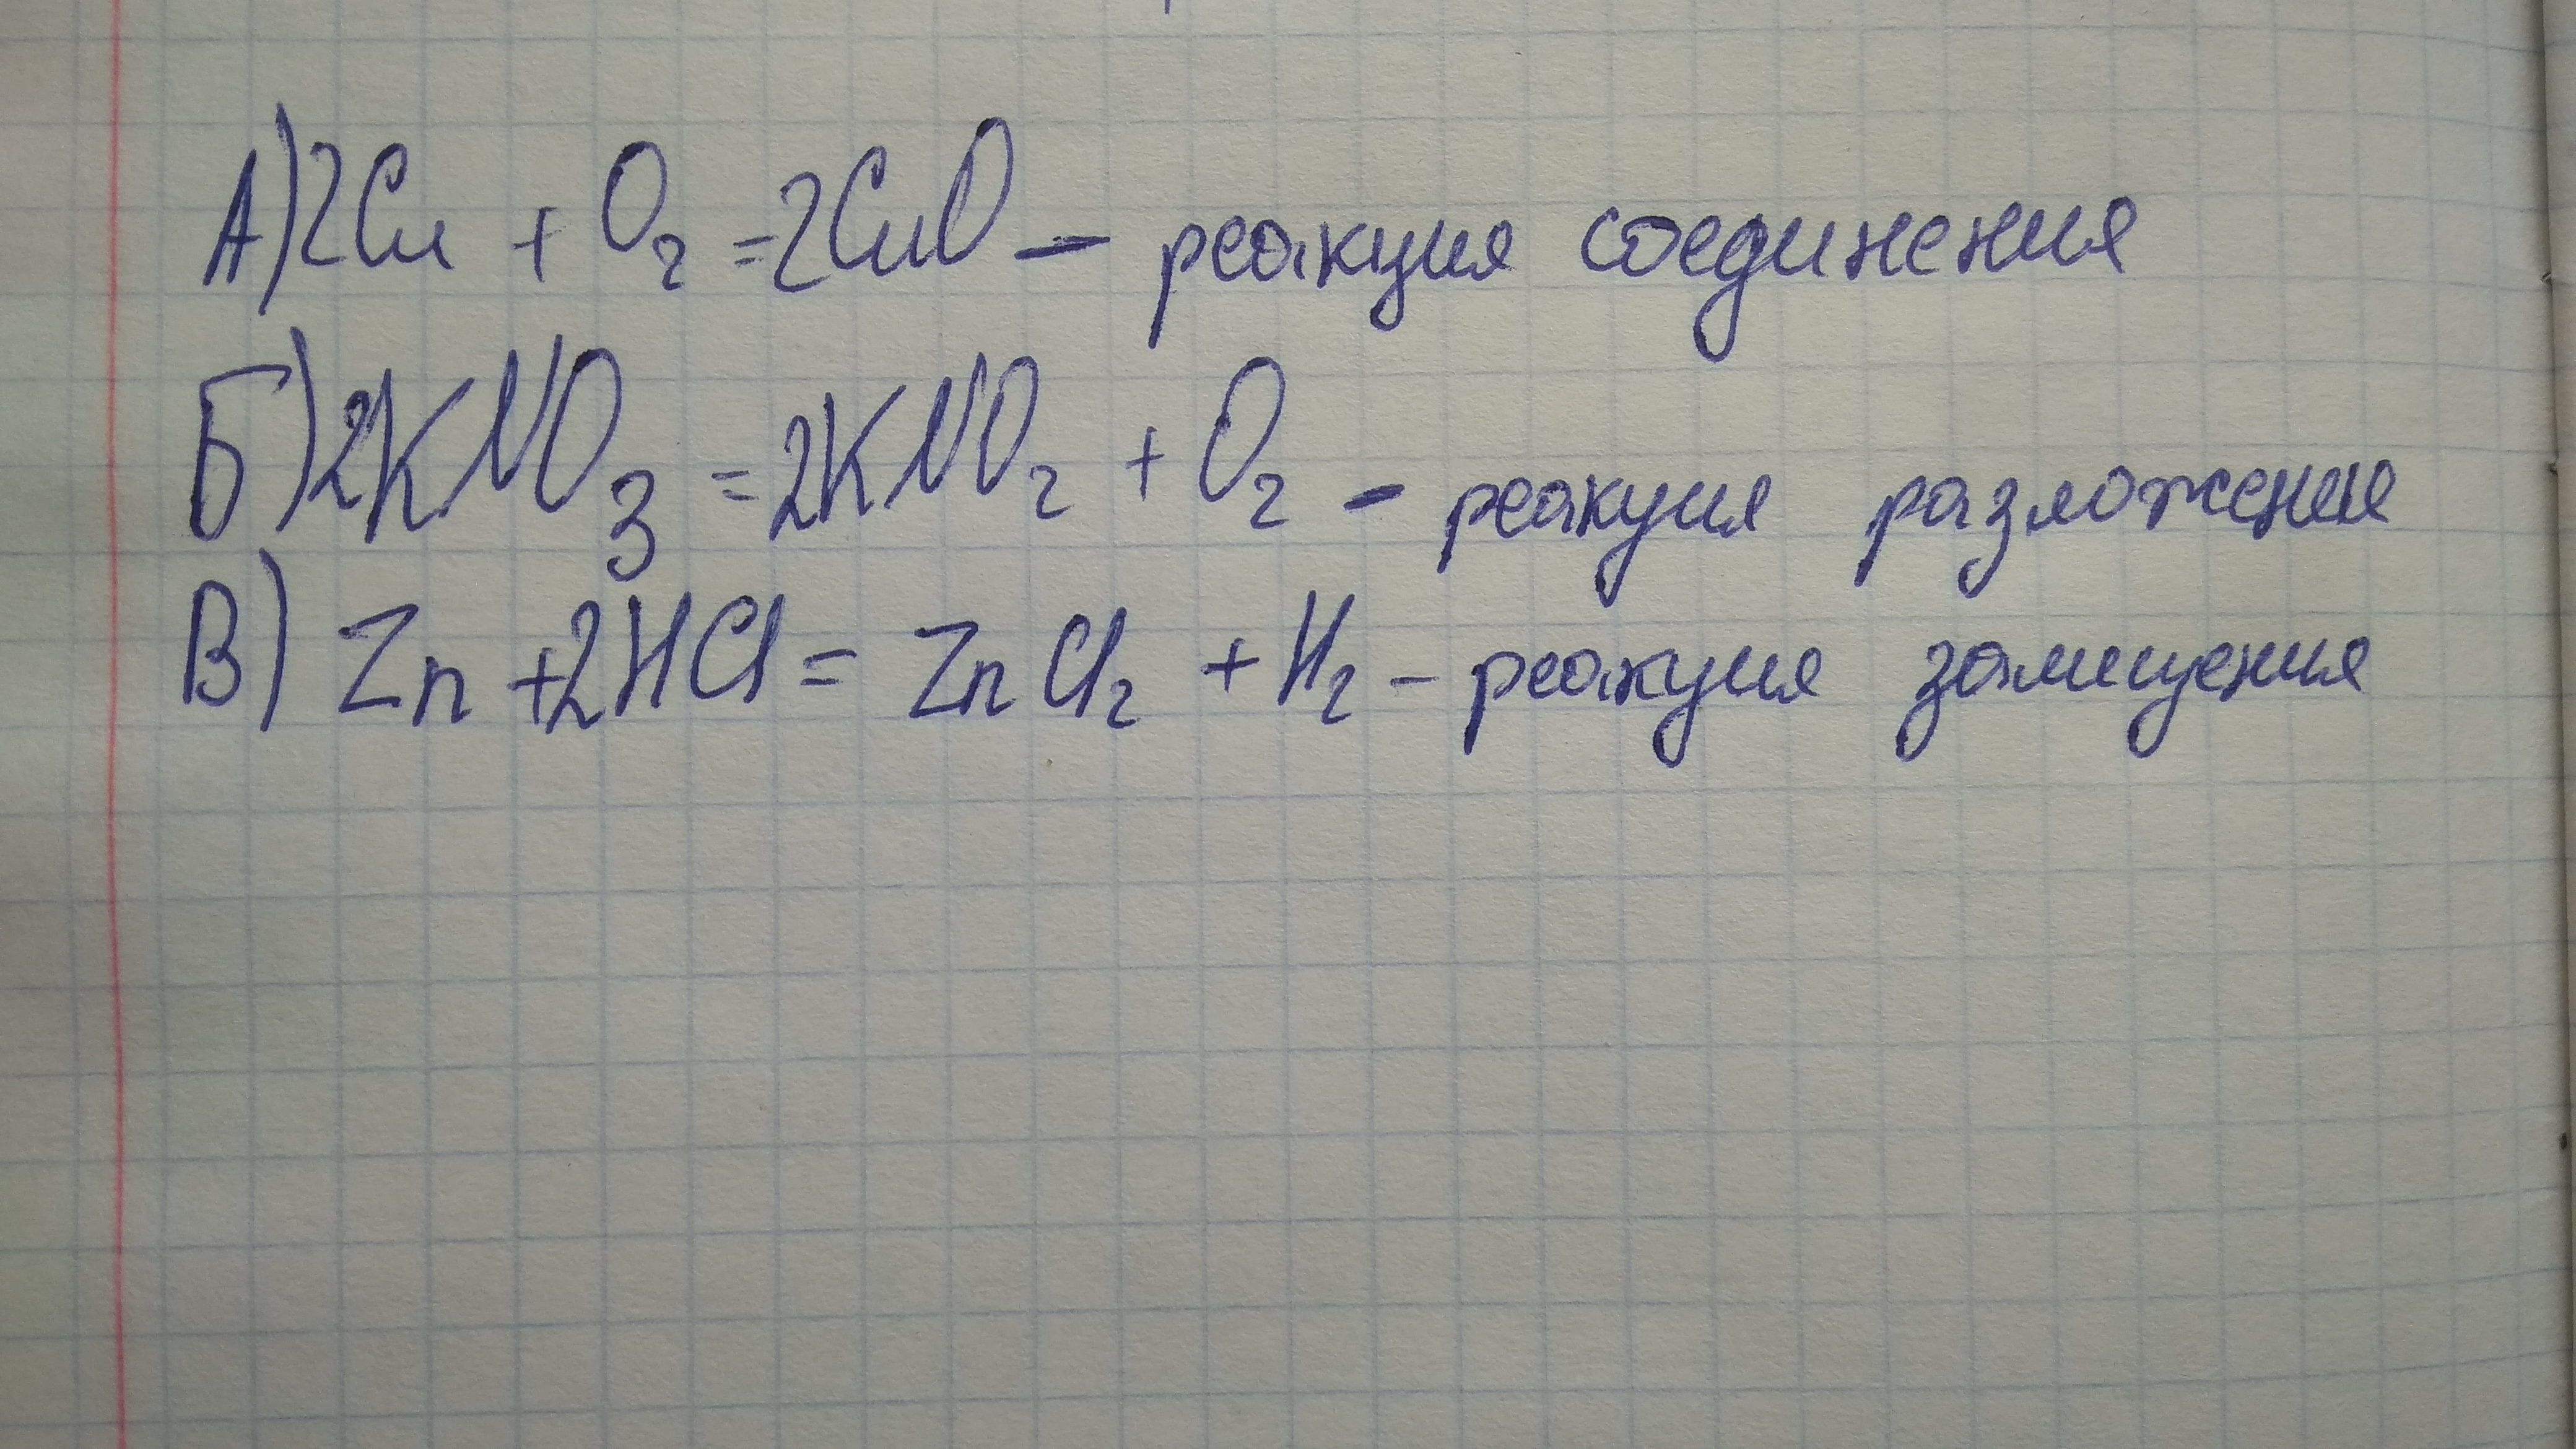 А) 2Cu + O₂ = 2CuO — реакция соединения
Б) 2KNO₃ = 2KNO₂ + O₂ - реакция разложения
В) Zn + 2HCl = ZnCl₂ + H₂ - реакция замещения